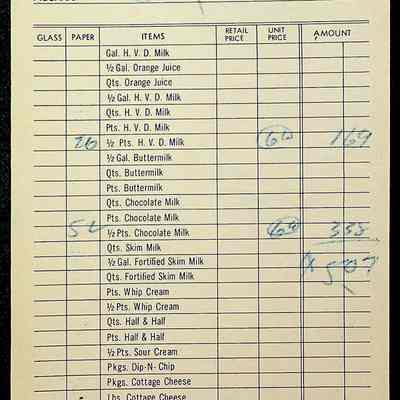 GLASS PAPER ITEMS RETAIL PRICE UNIT PRICE AMOUNT
Gal. H. V. D. Milk
½ Gal. Orange Juice
Qts. Orange Juice
½ Gal. H. V. D. Milk
Qts. H. V. D. Milk
Pts. H. V. D. Milk
26 ½ Pts. H. V. D. Milk 6½ 169
½ Gal. Buttermilk
Qts. Buttermilk
Pts. Buttermilk
Qts. Chocolate Milk
Pts. Chocolate Milk
52 ½ Pts. Chocolate Milk 6½ 338
Qts. Skim Milk
½ Gal. Fortified Skim Milk 507
Qts. Fortified Skim Milk
Pts. Whip Cream
½ Pts. Whip Cream
Qts. Half & Half
Pts. Half & Half
½ Pts. Sour Cream
Pkgs. Dip-N-Chip
Pkgs. Cottage Cheese
Lbs. Cottage Cheese